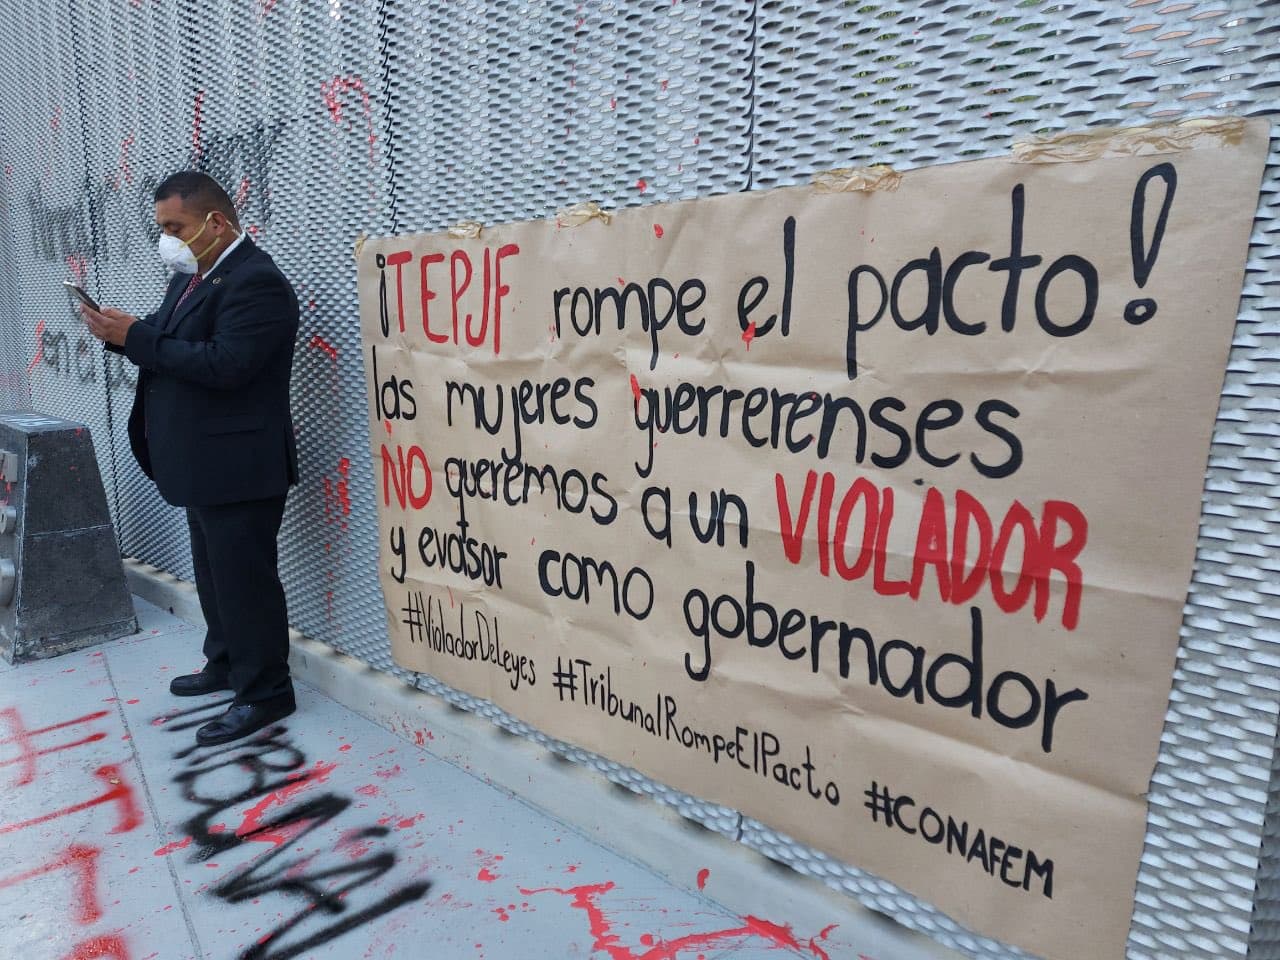 ¡TEPJF rompe el pacto!
las mujeres guerrerenses
NO queremos a un VIOLADOR
y evatsor como gobernador
#VioladorDeLeyes #TribunalRompeElPacto #CONAFEM